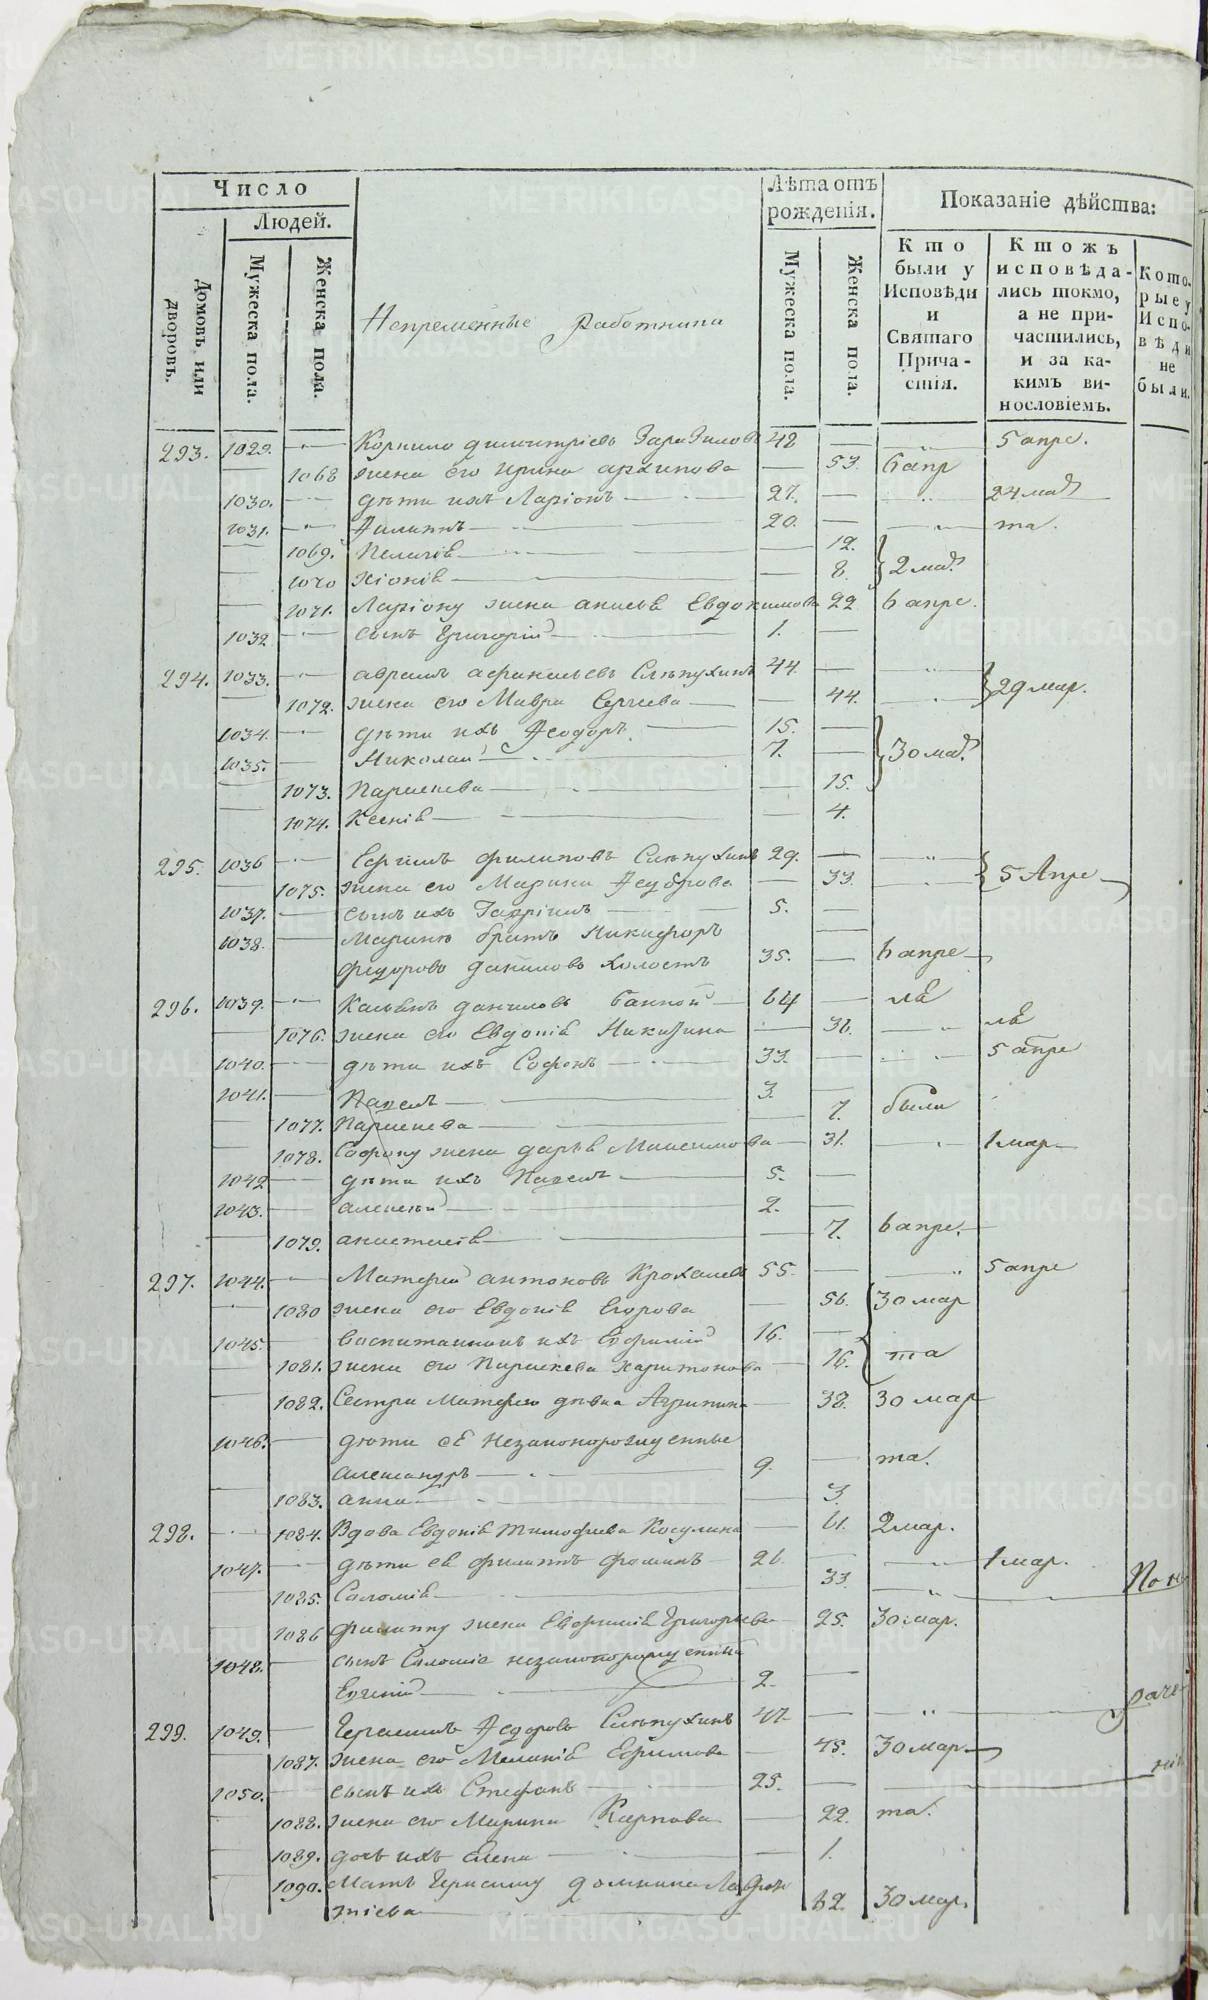 Число
Людей.
Домовъ или дворовъ.
Мужеска пола.
Женска пола.
Лѣта отъ рожденія.
Мужеска пола.
Женска пола.
Показаніе дѣйства:
Кто были у Исповѣди и Святаго Причастія.
Ктожъ исповѣдались токмо, а не причастились, и за какимъ винословіемъ.
Которые у Исповѣди не были.
Непременные работника
293. 1029. Корнило димитріевъ 48 5 апре.
1068 жена его Ирина архипова 53. 6 апр
1030. дѣти ихъ Ларіонъ 27. 24 мар
1031. Филиппъ 20. та.
1069. Пелагія 12.
1070 Хіонія 8. 2 мар
1071. Ларіону жена анисья Евдокимова 22 6 апре.
1032 сынъ Григорій 1.
294. 1033. авраамъ афанасьевъ Слѣпухинъ 44. 29 мар.
1072. жена его Мавра Сергеева 44.
1034. дѣти ихъ Феодоръ 15.
1035. Николай 7. 30 мар
1073. Параскева 15.
1074. Ксенія 4.
295. 1036 Ефимъ филиповъ Слѣпухинъ 29. 5 Апре
1075. жена его Марина Федорова 33.
1037. сынъ ихъ Гавріилъ 5.
1038. Марины братъ Никифоръ
федоровъ даниловъ холостъ 35. 6 апре
296. 1039. Касьянъ даниловъ Банной 64
1076. жена его Евдокія Никитина 36.
1040. дѣти ихъ Софонъ 33. 5 апре
1041. Павелъ 3.
1077. Параскева 7. были
1078. Софону жена дарья Максимова 31. 1 мар
1042 дѣти ихъ Павелъ 5.
1043. алексей 2.
1079. анастасія 7. 6 апре.
297. 1044. Матфей антоновъ Крохалевъ 55. 5 апре
1080 жена его Евдокія Егорова 56. 30 мар
1045. воспитанникъ ихъ Ефимій 16.
1081. жена его Параскева харитонова 16. та
1082. Сестра Матфею дѣвка Агрипина 38. 30 мар
1046. дѣти еѣ незаконорожденные
александръ 9. та.
1083. анна 3.
298. 1084. Вдова Евдокія Тимофеева Косулина 61. 2 мар.
1047. дѣти ея филиппъ фоминъ 26. 1 мар.
1085. Саломія 33.
1086 филиппу жена Евфимія Григорьева 25. 30 мар.
1048. сынъ Саломіи незаконорожденный
Евгеній 2.
299. 1049. Герасимъ Федоровъ Слѣпухинъ 47
1087. жена его Меланія Ефимова 45. 30 мар.
1050. сынъ ихъ Стефанъ 25.
1088. жена его Марина Карпова 22. та.
1089. дочь ихъ Елена 1.
1090. Мать Герасиму домника Лаврен
тіева 82. 30 мар.